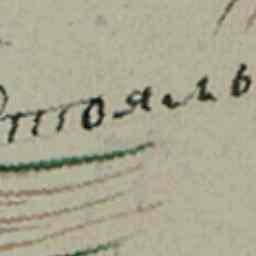 стояль